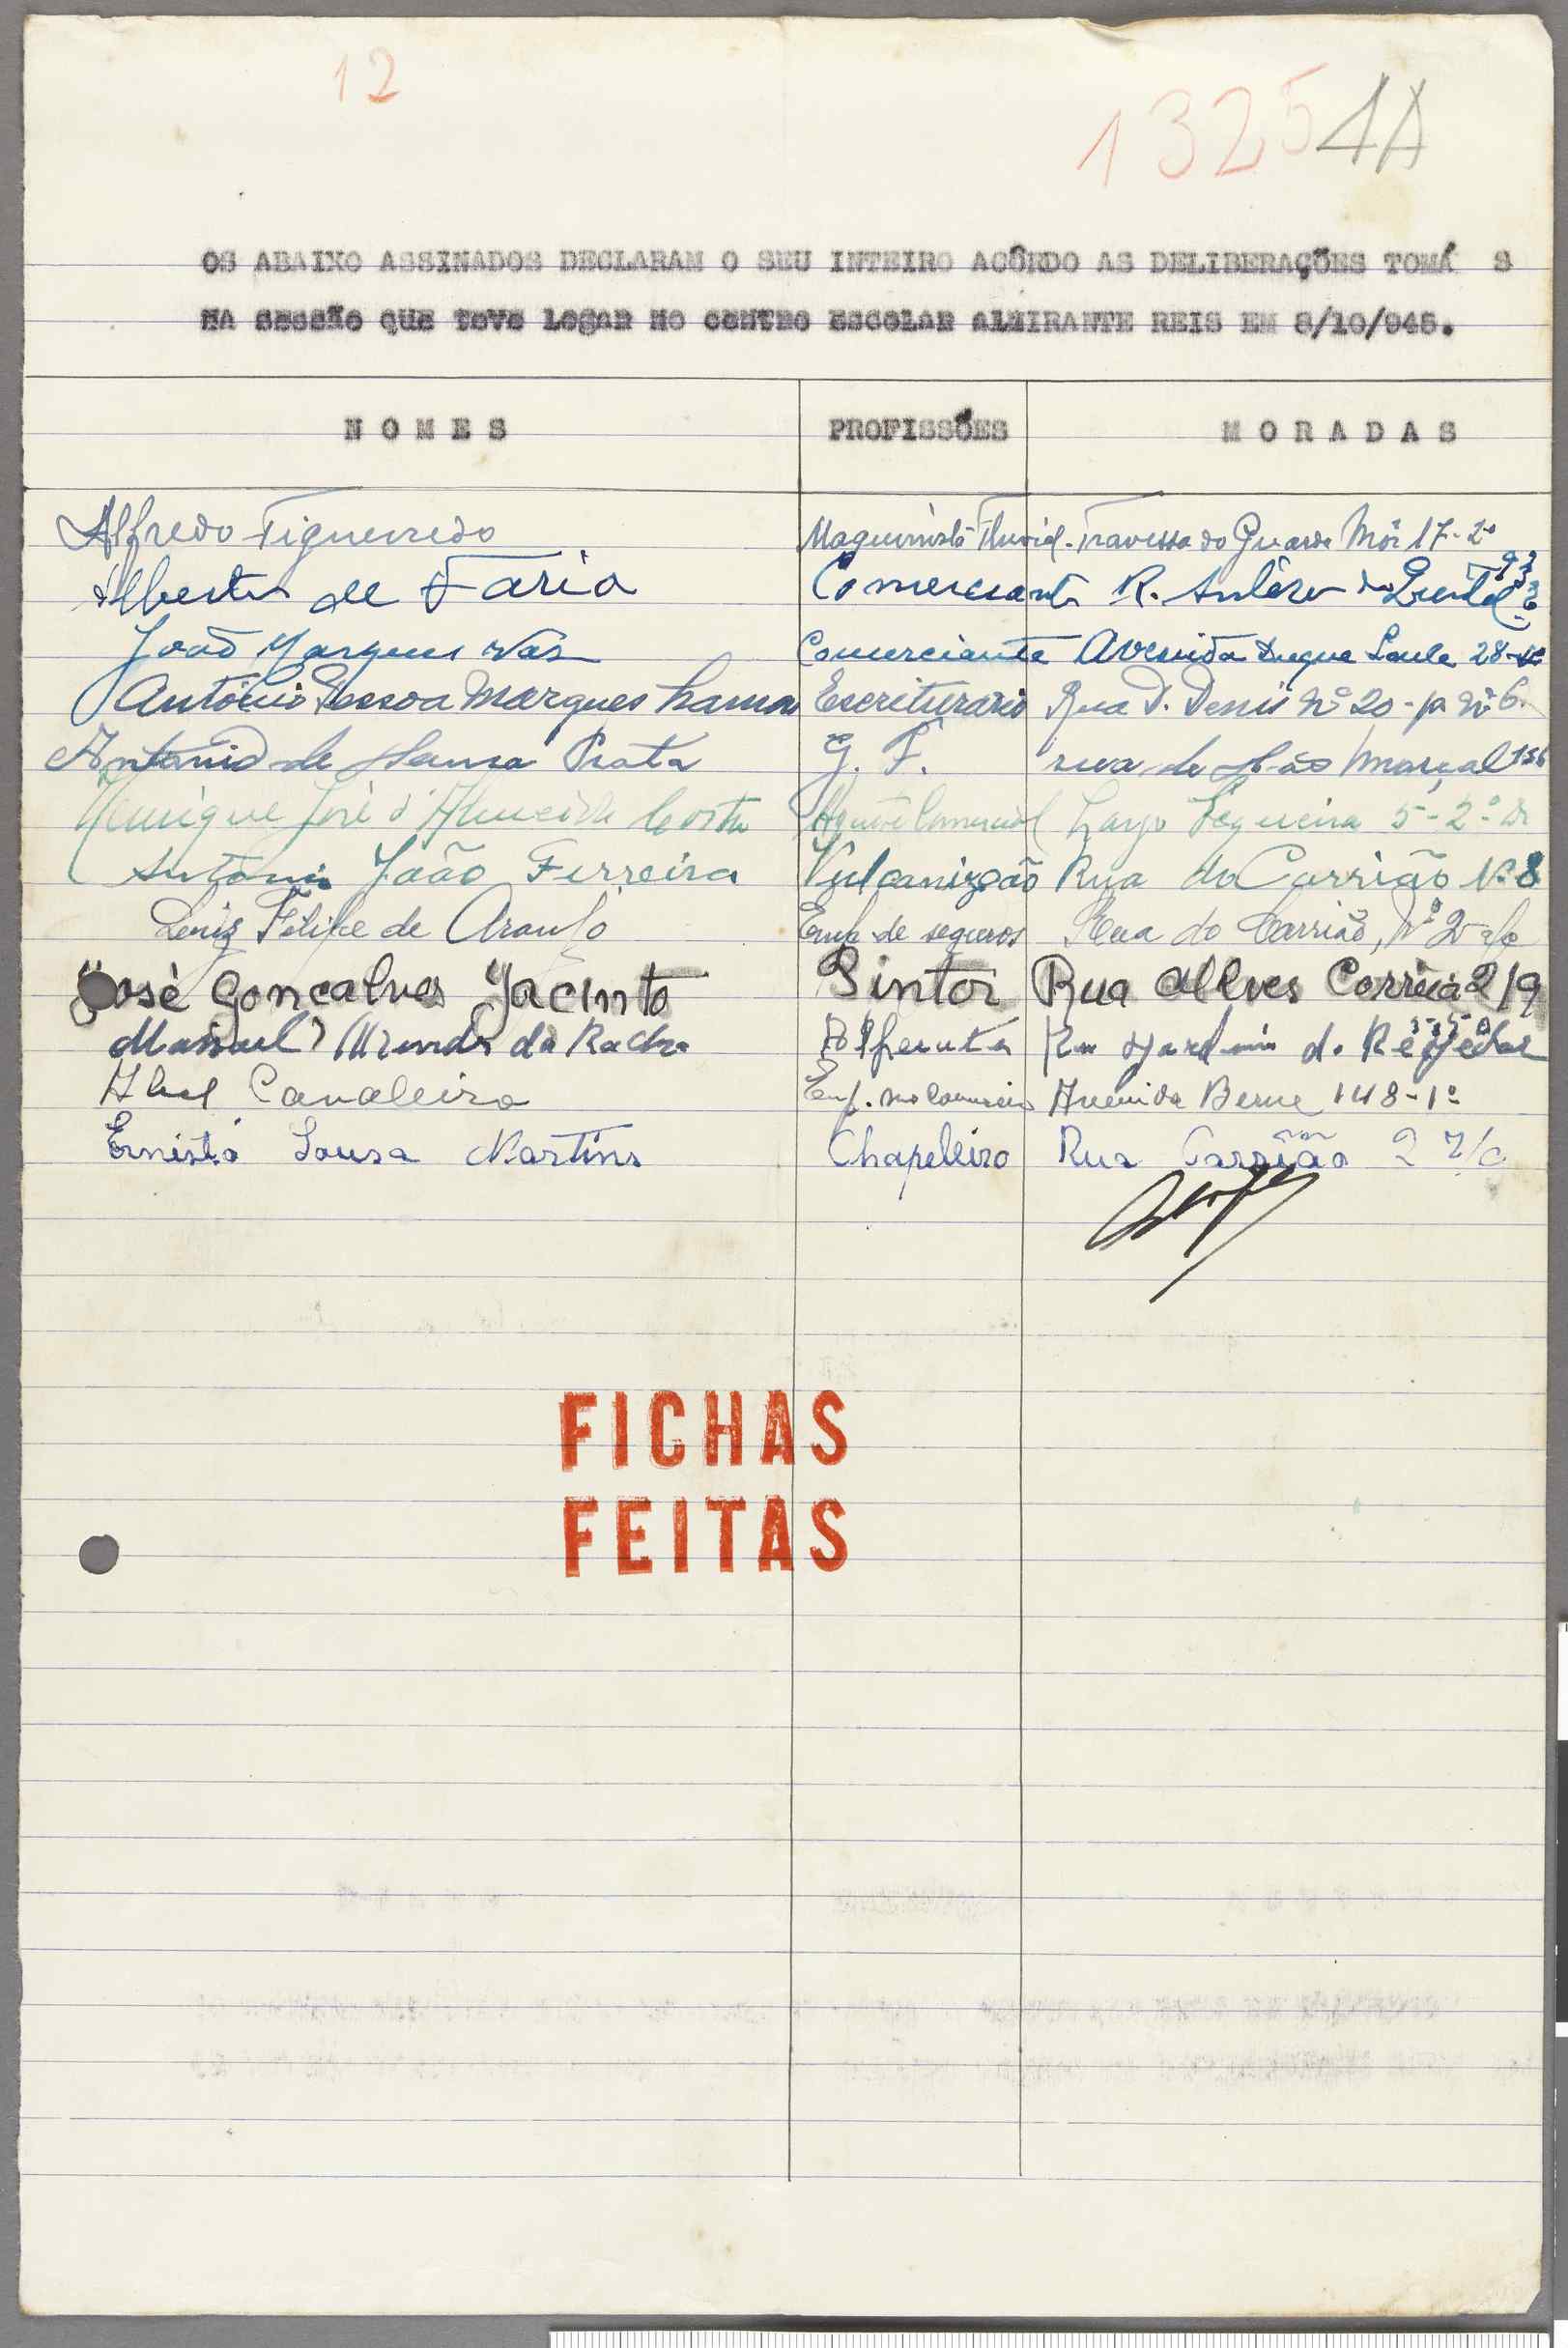 12
13254A
OS ABAIXO ASSINADOS DECLARAM O SEU INTEIRO ACÔRDO AS DELIBERAÇÕES TOMÁ S
NA SESSÃO QUE TEVE LOGAR NO CENTRO ESCOLAR ALMIRANTE REIS EM 8/10/945.
NOMES PROFISSÕES MORADAS
Alfredo Figueiredo Maquinista Fluvial - Travessa do Guarda Mór 17-2º
Alberto de Faria Comerciante R. Antéro do Quental
João Marques Vaz Comerciante Avenida Duque Loule 28
António Pessoa Marques Ramos Escriturario Rua D. Denis nº 20 - p nº 6
António de Sousa Prata G. F. rua de São Marçal 156
Henrique José d'Almeida Costa Agente Comercial Largo Sequeira 5-2º D
António João Ferreira Vulcanização Rua do Carrião Nº 8
Luiz Felipe de Araujo Emp de seguros Rua do Carrião, Nº 2 r/c
José Gonçalves Jacinto Pintor Rua Alves Corrêia 219
Manuel da Rocha Rua Jardim do Regedor
Abel Cavaleiro Emp. no Comercio Avenida Berne 148-1º
Ernesto Sousa Martins Chapelleiro Rua Carrião 2 r/c
FICHAS
FEITAS